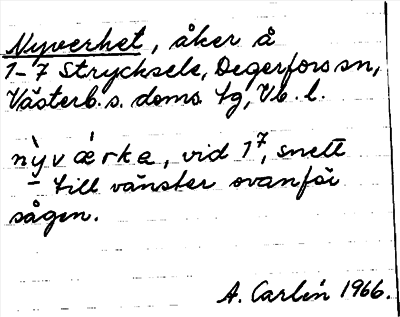 Nyverket, åker å
1-7 Strycksele, Degerfors sn,
Västerb. s. doms. tg, Vb. l.
nỳv ǽrka, vid 1⁷, snett
- till vänster ovanför
sågen.
A. Carlén 1966.